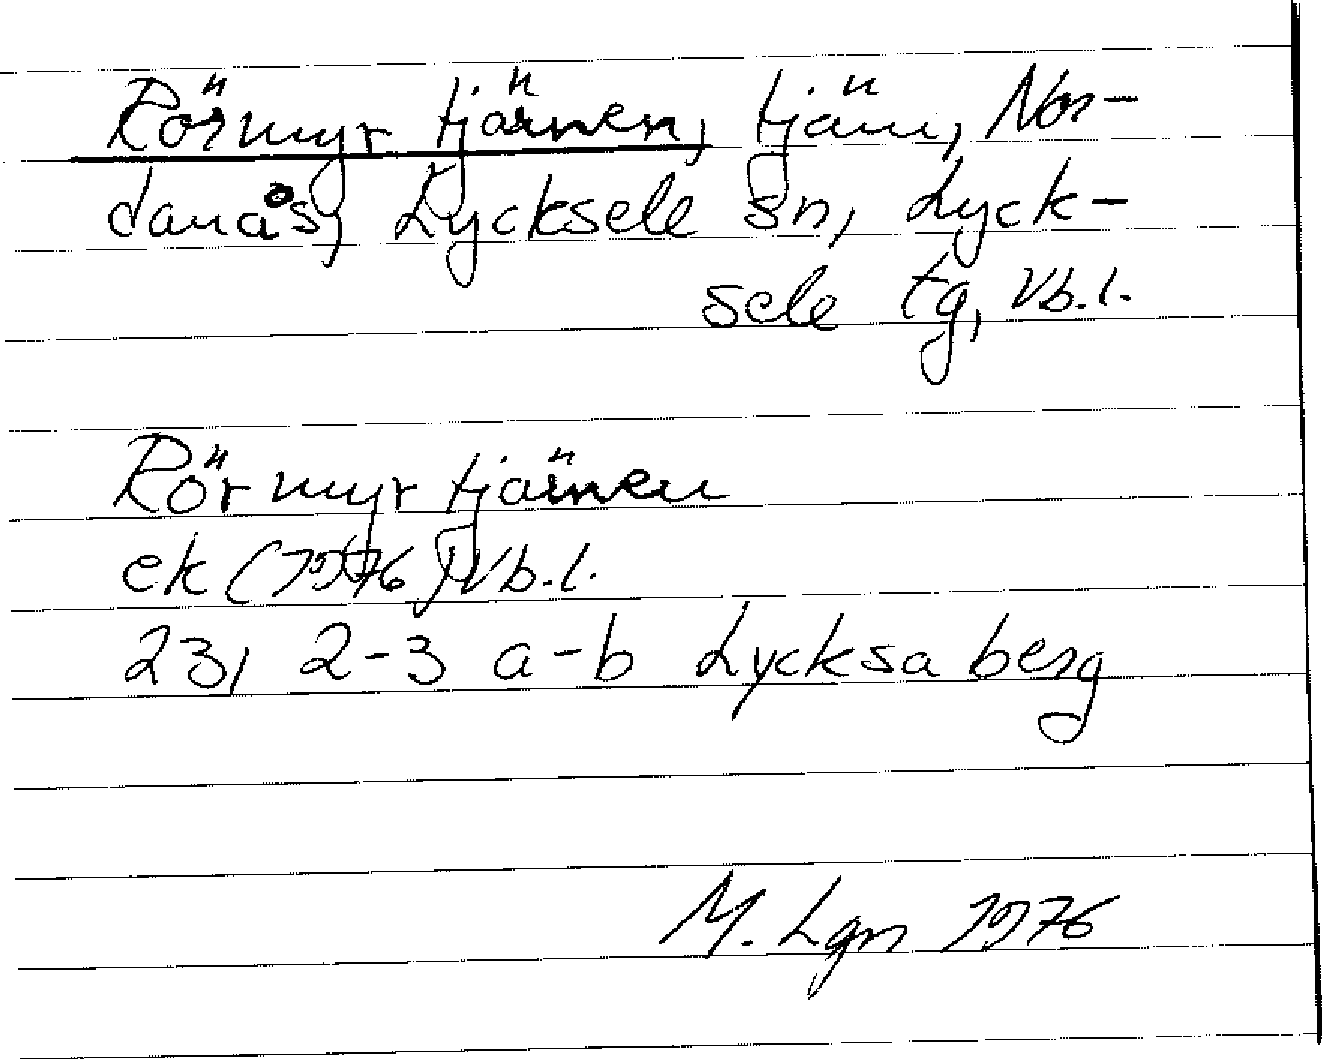 Rörmyrtjärnen, tjärn, Nor-
danås, Lycksele sn, Lyck-
sele tg, Vb.l.
Rörmyrtjärnen
ek (1976) Vb.l.
23, 2-3 a-b Lycksaberg
M. Lgn 1976